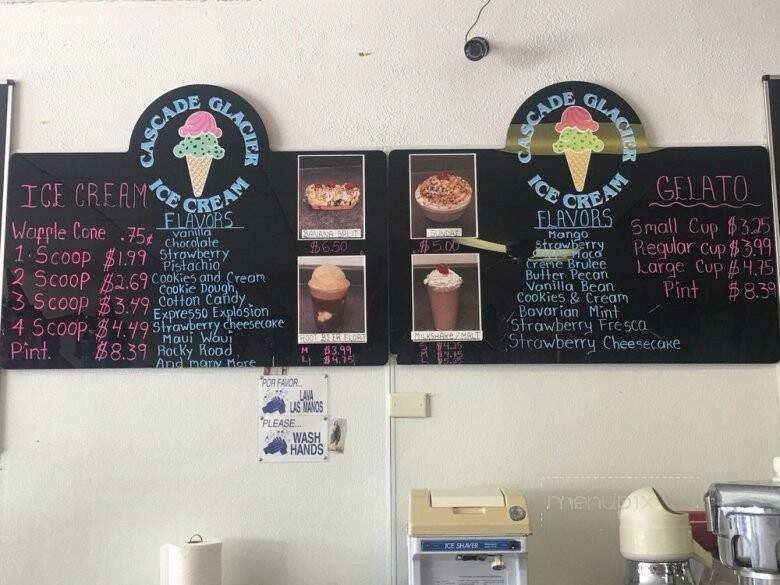 CASCADE GLACIER
ICE CREAM
ICE CREAM
Waffle Cone .75¢
1 Scoop $1.99
2 Scoop $2.69
3 Scoop $3.49
4 Scoop $4.49
Pint. $8.39
FLAVORS
Vanilla
Chocolate
Strawberry
Pistachio
Cookies and Cream
Cookie Dough
Cotton Candy
Expresso Explosion
Strawberry cheesecake
Maui Waui
Rocky Road
And many More
BANANA SPLIT
$6.50
ROOT BEER FLOAT
M $3.99
L $4.75
CASCADE GLACIER
ICE CREAM
SUNDAE
$5.00
MILKSHAKE/MALT
FLAVORS
Mango
Strawberry
Creme Brulee
Butte Pecan
Vanilla Bean
Cookies & Cream
Bavarian Mint
Strawberry Fresca
Strawberry Cheesecake
GELATO
Small Cup $3.25
Regular Cup $3.99
Large Cup $4.75
Pint $8.39
POR FAVOR...
LAVA
LAS MANOS
PLEASE...
WASH
HANDS
ICE SHAVER
menupix